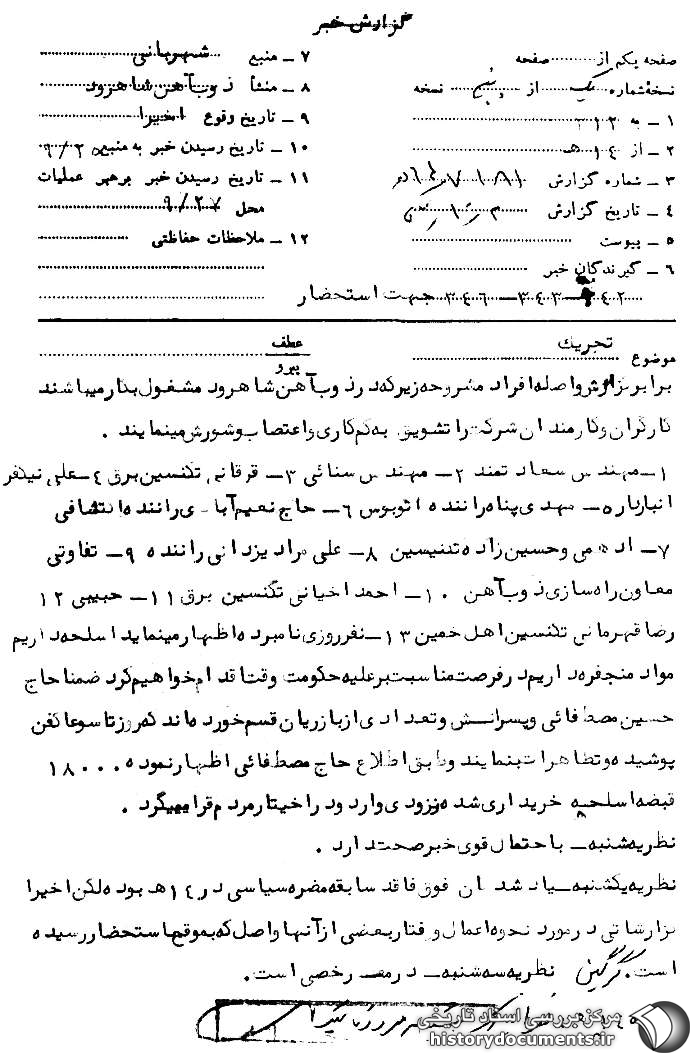 گزارش خبر
صفحه یکم از صفحه
نسخه شماره یک از پنج نسخه
۱ – به ۳۱۲
۲ – از ۱۴ هـ
۳ – شماره گزارش
۴ – تاریخ گزارش
۵ – پیوست
۶ – گیرندگان خبر
۳۴۲ – ۳۴۳ – ۳۴۶ جهت استحضار
۷ – منبع شهربانی
۸ – منشأ ذوب آهن شاهرود
۹ – تاریخ وقوع اخیرا
۱۰ – تاریخ رسیدن خبر به منبع ۹/۲۵
۱۱ – تاریخ رسیدن خبر برهبر عملیات
محل ۹/۲۷
۱۲ – ملاحظات حفاظتی
موضوع تحریک
عطف
پیرو
برابر گزارش واصله افراد مشروحه زیر که در ذوب آهن شاهرود مشغول بکار میباشند
کارگران و کارمندان شرکت را تشویق به کم کاری و اعتصاب و شورش مینمایند .
۱– مهندس سعادتمند ۲– مهندس سنائی ۳– قرقانی تکنسین برق ۴– علی نیکفر
انباردار ۵– مهدی پناه راننده اتوبوس ۶– حاج نعیم آبادی راننده اکتشافی
۷– ادهمی و حسین زاده تکنیسین ۸– علی مراد یزدانی راننده ۹– تفاوتی
معاون راه سازی ذوب آهن ۱۰– احمد اخیانی تکنسین برق ۱۱– حبیبی ۱۲
رضا قهرمانی تکنسین اهل خمین ۱۳– نفر روزی نامبرده اظهار مینماید اسلحه داریم
مواد منجفره داریم در فرصت مناسبت بر علیه حکومت وقت اقدام خواهیم کرد ضمنا حاج
حسین مصطفائی و پسرانش و تعدادی از بازریان قسم خورده اند که روز تاسوعا کفن
پوشیده و تظاهرات بنمایند و طبق اطلاع حاج مصطفائی اظهار نموده ۱۸۰۰۰
قبضه اسلحه خریداری شده و بزودی وارد و در اختیار مردم قرا میگرد .
نظریه شنبه – با حتمال قوی خبر صحت دارد .
نظریه یکشنبه – یاد شدگان فوق فاقد سابقه مضره سیاسی در ۱۴ هـ بوده لکن اخیرا
گزارشاتی در مورد نحوه اعمال و رفتار بعضی از آنها واصل که بموقع باستحضار رسیده
است . گرگین نظریه سه شنبه – در مرخصی است .
مرکز بررسی اسناد تاریخی
historydocuments.ir